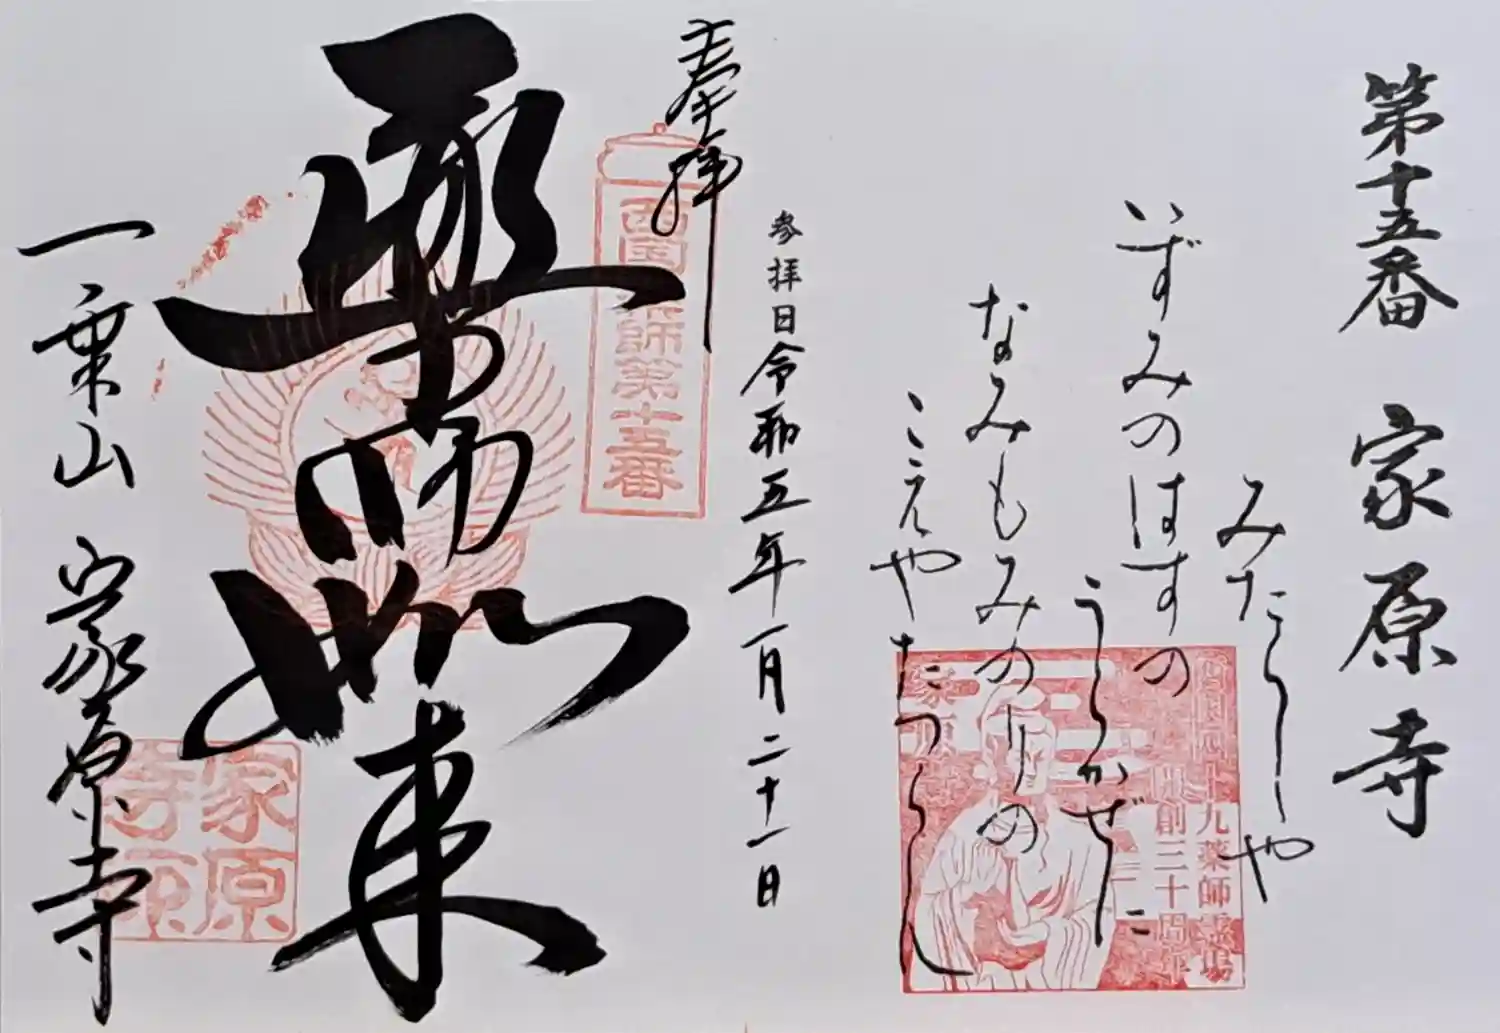 第十五番 家原寺
みたらしや
いずみのはすの
うらかぜに
なみもみのりの
こえやたつらし
参拝日令和五年一月二十一日
奉拝
薬師如来
一乗山 家原寺
西国薬師第十五番
家原寺
西国四十九薬師霊場
開創三十周年
家原寺